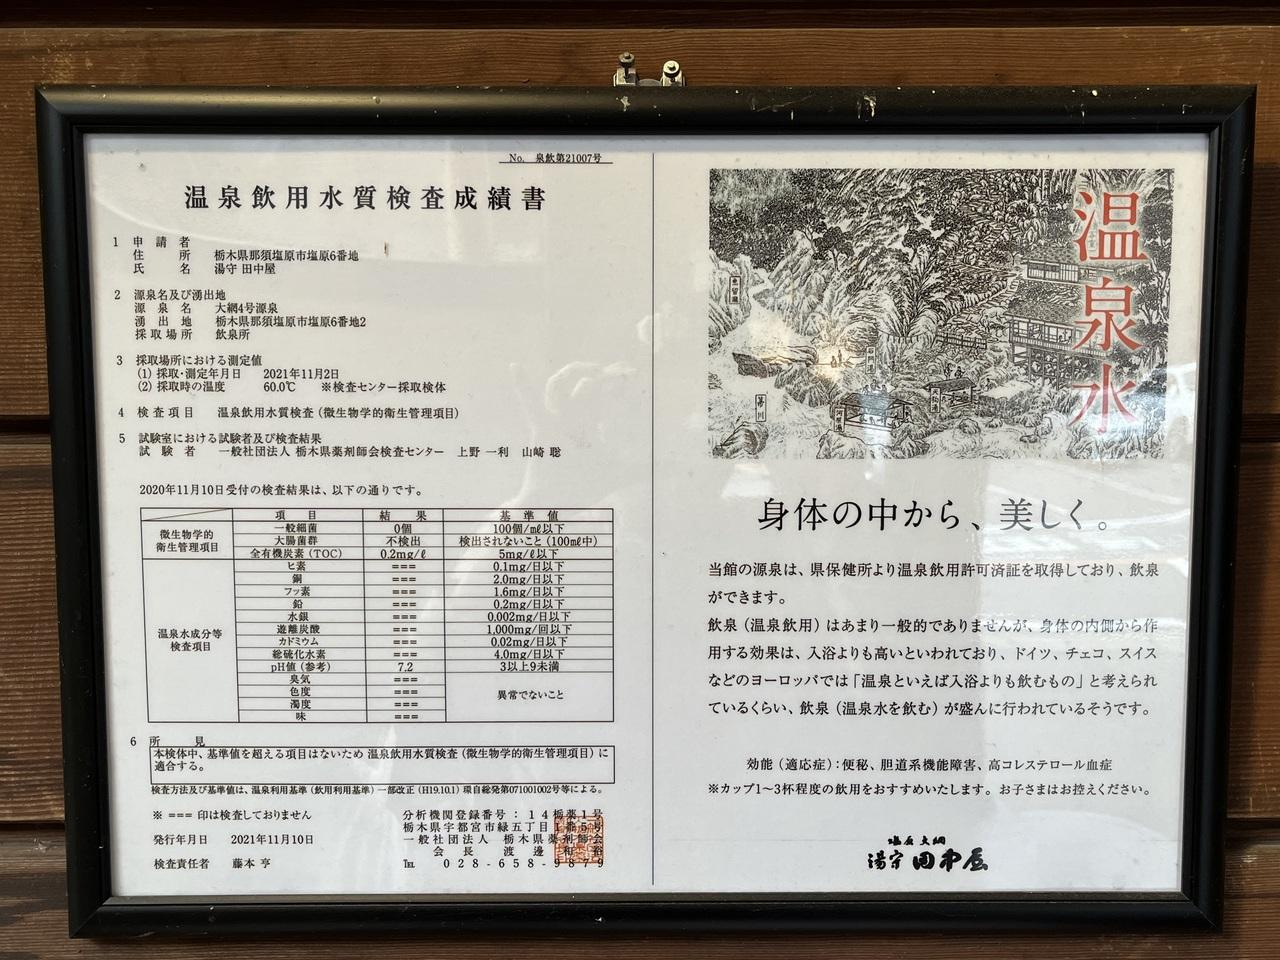 No. 泉飲第21007号
温泉飲用水質検査成績書
1 申請者
住所 栃木県那須塩原市塩原6番地
氏名 湯守 田中屋
2 源泉名及び湧出地
源泉名 大網4号源泉
湧出地 栃木県那須塩原市塩原6番地2
採取場所 飲泉所
3 採取場所における測定値
(1) 採取・測定年月日 2021年11月2日
(2) 採取時の温度 60.0℃ ※検査センター採取検体
4 検査項目 温泉飲用水質検査（微生物学的衛生管理項目）
5 試験室における試験者及び検査結果
試験者 一般社団法人 栃木県薬剤師会検査センター 上野 一利 山崎 聡
2020年11月10日受付の検査結果は、以下の通りです。
項目 結果 基準値
微生物学的
衛生管理項目
一般細菌 0個 100個/mℓ以下
大腸菌群 不検出 検出されないこと（100mℓ中）
全有機炭素（TOC） 0.2mg/ℓ 5mg/ℓ以下
温泉水成分等
検査項目
ヒ素 === 0.1mg/日以下
銅 === 2.0mg/日以下
フッ素 === 1.6mg/日以下
鉛 === 0.2mg/日以下
水銀 === 0.002mg/日以下
遊離炭酸 === 1,000mg/回以下
カドミウム === 0.02mg/日以下
総硫化水素 === 4.0mg/日以下
pH値（参考） 7.2 3以上9未満
臭気 ===
色度 === 異常でないこと
濁度 ===
味 ===
6 所見
本検体中、基準値を超える項目はないため 温泉飲用水質検査（微生物学的衛生管理項目）に
適合する。
検査方法及び基準値は、温泉利用基準（飲用利用基準）一部改正（H19.10.1）環自総発第071001002号等による。
※ === 印は検査しておりません
発行年月日 2021年11月10日
検査責任者 藤本 亨
分析機関登録番号：14栃薬1号
栃木県宇都宮市緑五丁目1番5号
一般社団法人 栃木県薬剤師会
会長 渡邊 和裕
℡ 028-658-9879
温泉水
身体の中から、美しく。
当館の源泉は、県保健所より温泉飲用許可済証を取得しており、飲泉
ができます。
飲泉（温泉飲用）はあまり一般的でありませんが、身体の内側から作
用する効果は、入浴よりも高いといわれており、ドイツ、チェコ、スイス
などのヨーロッパでは「温泉といえば入浴よりも飲むもの」と考えられ
ているくらい、飲泉（温泉水を飲む）が盛んに行われているそうです。
効能（適応症）：便秘、胆道系機能障害、高コレステロール血症
※カップ1〜3杯程度の飲用をおすすめいたします。お子さまはお控えください。
塩原大網
湯守 田中屋